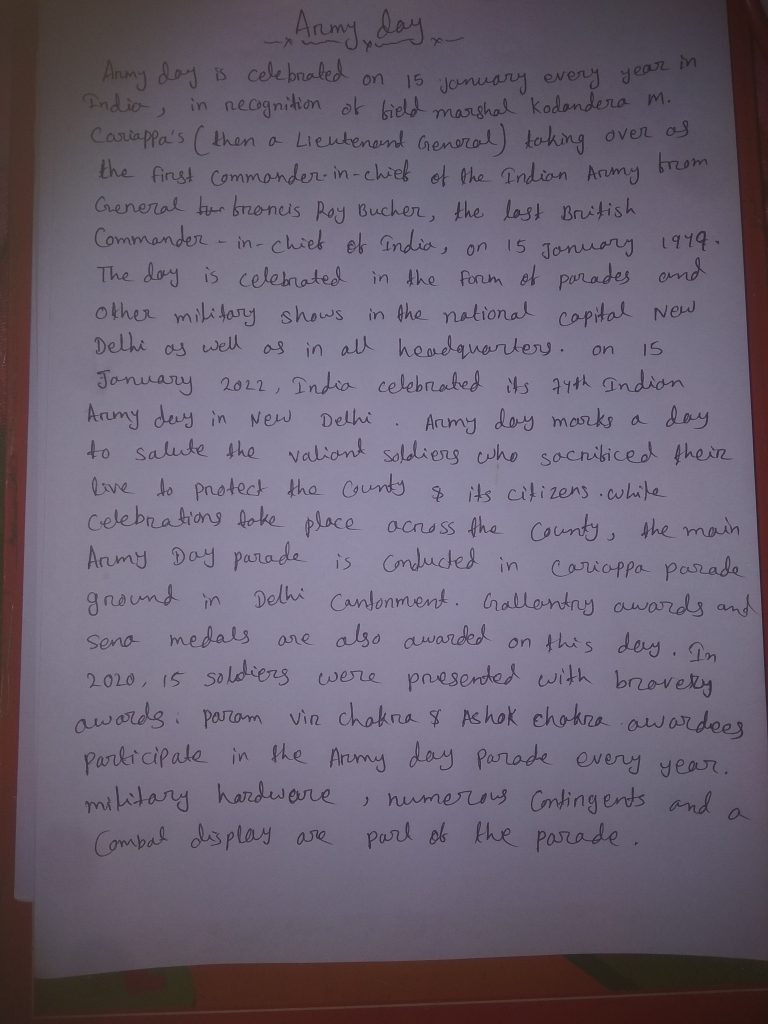 Army day
Army day is celebrated on 15 january every year in
India, in recognition of field marshal Kodandera M.
Cariappa's (then a Lieutenant General) taking over as
the first commander-in-chief of the Indian Army from
General francis Roy Bucher, the last British
Commander-in-chief of India, on 15 January 1949.
The day is celebrated in the form of parades and
other military shows in the national capital New
Delhi as well as in all headquarters. on 15
January 2022, India celebrated its 74th Indian
Army day in New Delhi. Army day marks a day
to salute the valiant soldiers who sacrificed their
live to protect the County & its citizens. while
Celebrations take place across the County, the main
Army Day parade is conducted in Cariappa parade
ground in Delhi Cantonment. Gallantry awards and
sena medals are also awarded on this day. In
2020, 15 soldiers were presented with bravery
awards. param vir chakra & Ashok chakra awardees
participate in the Army day parade every year.
military hardware, numerous Contingents and a
Combat display are part of the parade.